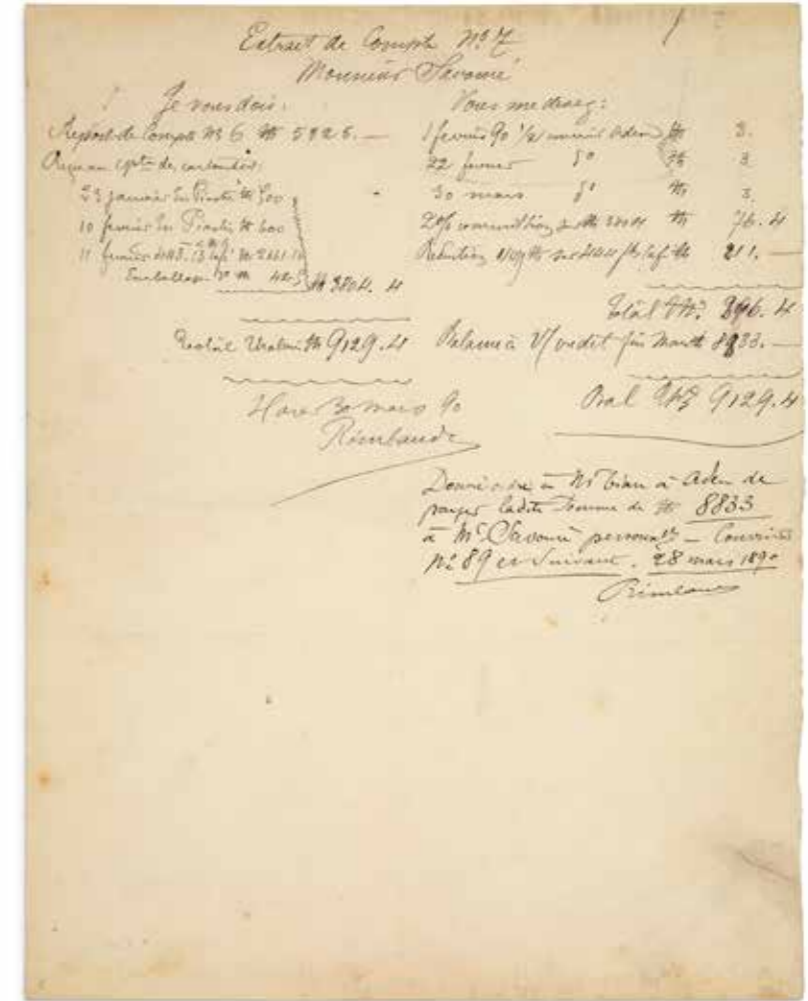 Extrait de Compte Nº 7
Monsieur Savouré
Je vous dois:
Report de Compte Nº 6 th 5325. —
Reçu en cpte de cartouches:
23 janvier En Piastres th 500
10 février En Piastres th 600
11 février
Emballage
th 3804. 4
Total th 9129. 4
Harar 30 mars 90
Rimbaud
Vous me devez:
1 février 90 ½ courrier Aden th 3.
22 février dº th 3
30 mars dº th 3.
2% commission sur th 3804 th 76. 4
th 211. —
Total th. 296. 4
Balance à V/ crédit fin Mars th 8833. —
Bal th. 9129. 4
Donné ordre à Mr Tian à Aden de
payer ladite Somme de th 8833
à Mr Savouré — Courrier
Nº 89 et Suivant. 28 mars 1890
Rimbaud